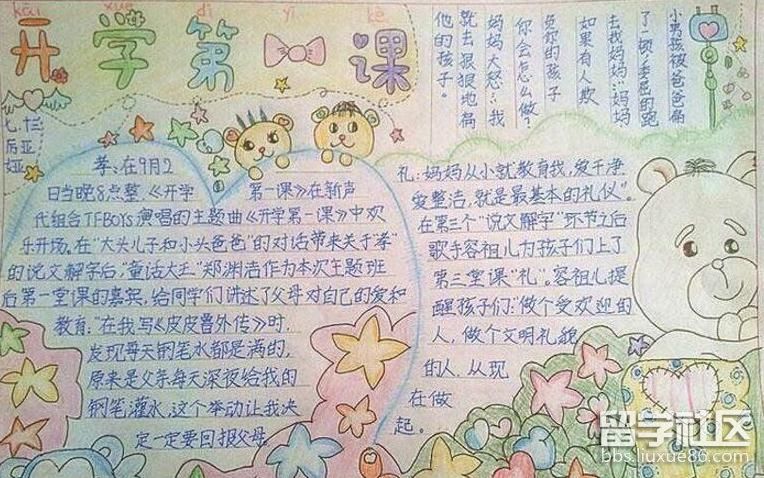 kāi xué dì yī kè
开学第一课
七、十三
厉亚
娅
小男孩被爸爸扁
了一顿,委屈的跑
去找妈妈…妈妈
如果有人欺
负您的孩子
你会怎么做?
妈妈大怒:我
就去狠狠地扁
他的孩子。
孝:在9月2
日当晚8点整《开学 第一课》在新声
代组合TFBOYS演唱的主题曲《开学第一课》中欢
乐开场。在"大头儿子和小头爸爸"的对话带来关于"孝"
的说文解字后,"童话大王"郑渊洁作为本次主题班
后第一堂课的嘉宾,给同学们讲述了父母对自己的爱和
教育:"在我写《皮皮鲁外传》时,
发现每天钢笔水都是满的,
原来是父亲每天深夜给我的
钢笔灌水,这个举动让我决
定一定要回报父母。
礼:"妈妈从小就教育我,爱干净
爱整洁,就是最基本的礼仪"。
在第三个"说文解字"环节之后
歌手容祖儿为孩子们上了
第三堂课"礼"。容祖儿提
醒孩子们:"做个受欢迎的
人,做个文明礼貌
的人,从现
在做
起。
留学社区
bbs.liuxue86.com